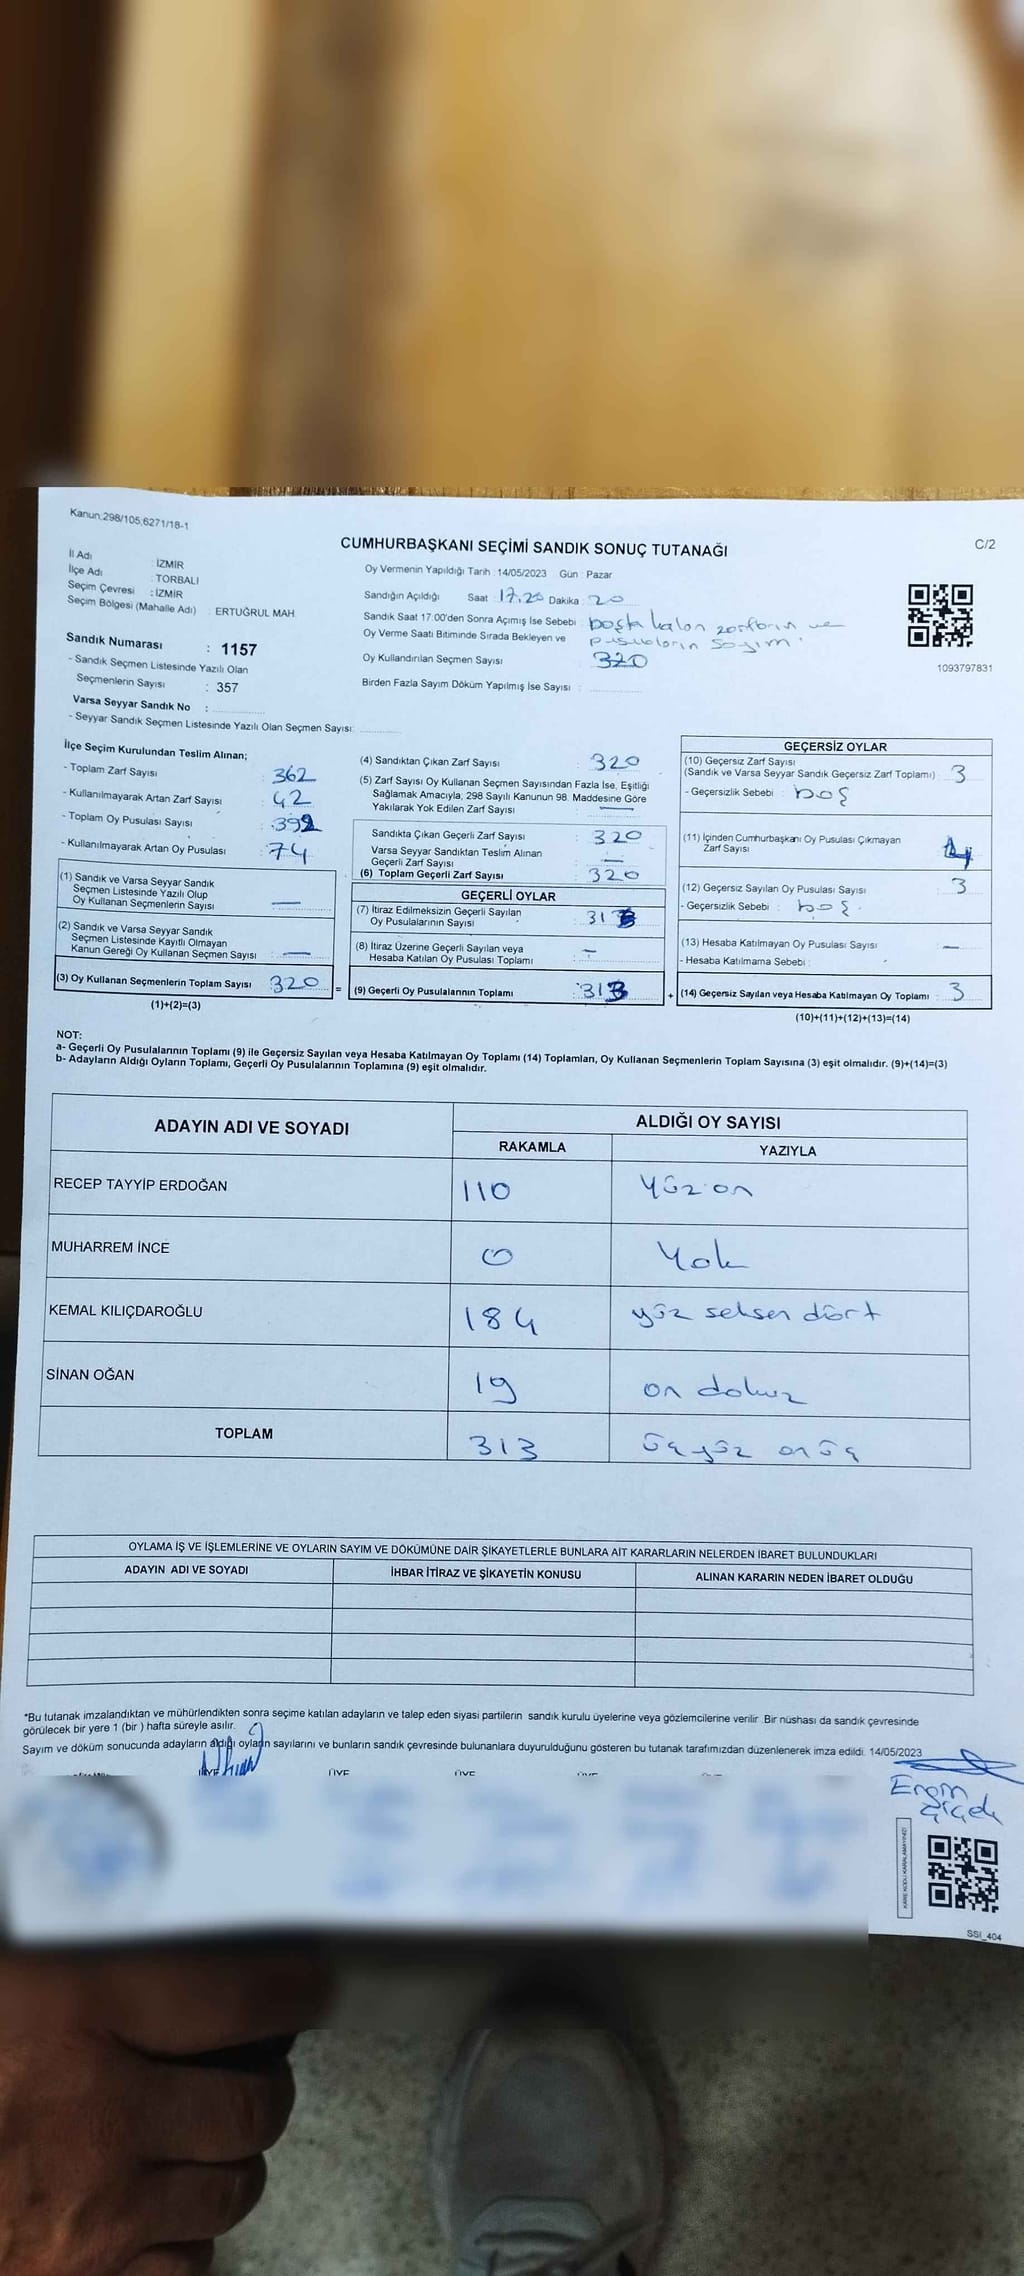 Kanun:298/105,6271/18-1
CUMHURBAŞKANI SEÇİMİ SANDIK SONUÇ TUTANAĞI
C/2
İl Adı : İZMİR
İlçe Adı : TORBALI
Seçim Çevresi : İZMİR
Seçim Bölgesi (Mahalle Adı) : ERTUĞRUL MAH.
Sandık Numarası : 1157
- Sandık Seçmen Listesinde Yazılı Olan
Seçmenlerin Sayısı : 357
Varsa Seyyar Sandık No :
- Seyyar Sandık Seçmen Listesinde Yazılı Olan Seçmen Sayısı:
Oy Vermenin Yapıldığı Tarih :14/05/2023 Gün : Pazar
Sandığın Açıldığı Saat 17.20 Dakika 20
Sandık Saat 17:00'den Sonra Açımış İse Sebebi : boşta kalan zarfların ve
Oy Verme Saati Bitiminde Sırada Bekleyen ve pusulaların sayımı
Oy Kullandırılan Seçmen Sayısı : 320
Birden Fazla Sayım Döküm Yapılmış İse Sayısı :
1093797831
İlçe Seçim Kurulundan Teslim Alınan;
- Toplam Zarf Sayısı : 362
- Kullanılmayarak Artan Zarf Sayısı : 42
- Toplam Oy Pusulası Sayısı : 392
- Kullanılmayarak Artan Oy Pusulası : 74
(1) Sandık ve Varsa Seyyar Sandık
Seçmen Listesinde Yazılı Olup
Oy Kullanan Seçmenlerin Sayısı : —
(2) Sandık ve Varsa Seyyar Sandık
Seçmen Listesinde Kayıtlı Olmayan
Kanun Gereği Oy Kullanan Seçmen Sayısı : —
(3) Oy Kullanan Seçmenlerin Toplam Sayısı : 320
(1)+(2)=(3)
=
(4) Sandıktan Çıkan Zarf Sayısı : 320
(5) Zarf Sayısı Oy Kullanan Seçmen Sayısından Fazla İse, Eşitliği
Sağlamak Amacıyla, 298 Sayılı Kanunun 98. Maddesine Göre
Yakılarak Yok Edilen Zarf Sayısı : —
Sandıkta Çıkan Geçerli Zarf Sayısı : 320
Varsa Seyyar Sandıktan Teslim Alınan
Geçerli Zarf Sayısı : —
(6) Toplam Geçerli Zarf Sayısı : 320
GEÇERLİ OYLAR
(7) İtiraz Edilmeksizin Geçerli Sayılan
Oy Pusulalarının Sayısı : 313
(8) İtiraz Üzerine Geçerli Sayılan veya
Hesaba Katılan Oy Pusulası Toplamı : —
(9) Geçerli Oy Pusulalarının Toplamı : 313
+
GEÇERSİZ OYLAR
(10) Geçersiz Zarf Sayısı
(Sandık ve Varsa Seyyar Sandık Geçersiz Zarf Toplamı) : 3
- Geçersizlik Sebebi : boş
(11) İçinden Cumhurbaşkanı Oy Pusulası Çıkmayan
Zarf Sayısı :
(12) Geçersiz Sayılan Oy Pusulası Sayısı : 3
- Geçersizlik Sebebi : boş
(13) Hesaba Katılmayan Oy Pusulası Sayısı : —
- Hesaba Katılmama Sebebi :
(14) Geçersiz Sayılan veya Hesaba Katılmayan Oy Toplamı : 3
(10)+(11)+(12)+(13)=(14)
NOT:
a- Geçerli Oy Pusulalarının Toplamı (9) ile Geçersiz Sayılan veya Hesaba Katılmayan Oy Toplamı (14) Toplamları, Oy Kullanan Seçmenlerin Toplam Sayısına (3) eşit olmalıdır. (9)+(14)=(3)
b- Adayların Aldığı Oyların Toplamı, Geçerli Oy Pusulalarının Toplamına (9) eşit olmalıdır.
ADAYIN ADI VE SOYADI
ALDIĞI OY SAYISI
RAKAMLA YAZIYLA
RECEP TAYYİP ERDOĞAN 110 Yüz on
MUHARREM İNCE 0 Yok
KEMAL KILIÇDAROĞLU 184 yüz seksen dört
SİNAN OĞAN 19 on dokuz
TOPLAM 313 üç yüz on üç
OYLAMA İŞ VE İŞLEMLERİNE VE OYLARIN SAYIM VE DÖKÜMÜNE DAİR ŞİKAYETLERLE BUNLARA AİT KARARLARIN NELERDEN İBARET BULUNDUKLARI
ADAYIN ADI VE SOYADI İHBAR İTİRAZ VE ŞİKAYETİN KONUSU ALINAN KARARIN NEDEN İBARET OLDUĞU
*Bu tutanak imzalandıktan ve mühürlendikten sonra seçime katılan adayların ve talep eden siyasi partilerin sandık kurulu üyelerine veya gözlemcilerine verilir. Bir nüshası da sandık çevresinde
görülecek bir yere 1 (bir ) hafta süreyle asılır.
Sayım ve döküm sonucunda adayların aldığı oyların sayılarını ve bunların sandık çevresinde bulunanlara duyurulduğunu gösteren bu tutanak tarafımızdan düzenlenerek imza edildi. 14/05/2023
ÜYE ÜYE ÜYE
KARE KODU KARALAMAYINIZ!
SSİ_404